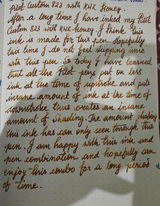 Pilot Custom 823 with KWZ Honey.
After a long time I have inked my Pilot
Custom 823 with KWZ honey. I think this
ink is made for this pen. Hopefully
this time I do not feel sleepy while
this pen. So today I have learned
that all the Pilot pens put on less
ink at the time of upstroke and put
insane amount of ink at the time of
downstroke thus creates an insane
amount of shading. The amount shading
this ink has can only seen through this
pen. I am happy with this ink and
pen combination and hopefully can
enjoy this combo for a long period
of time.